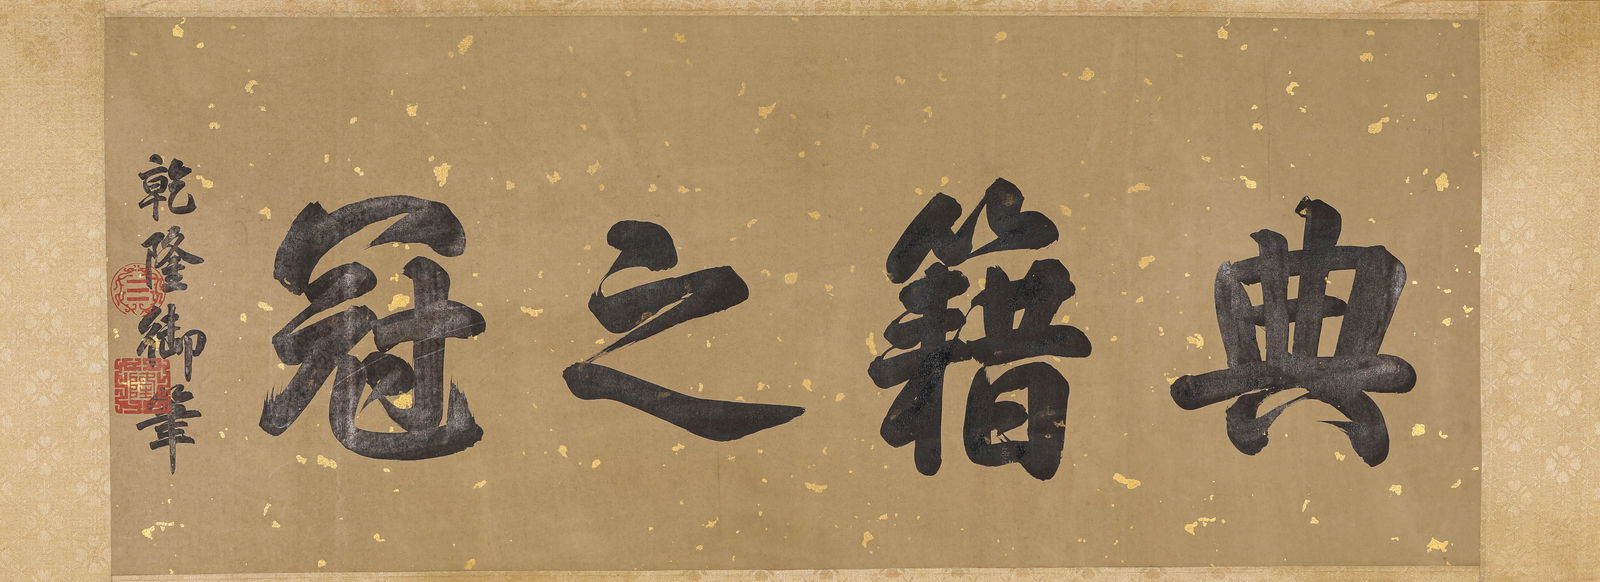 典籍之冠
乾隆御筆